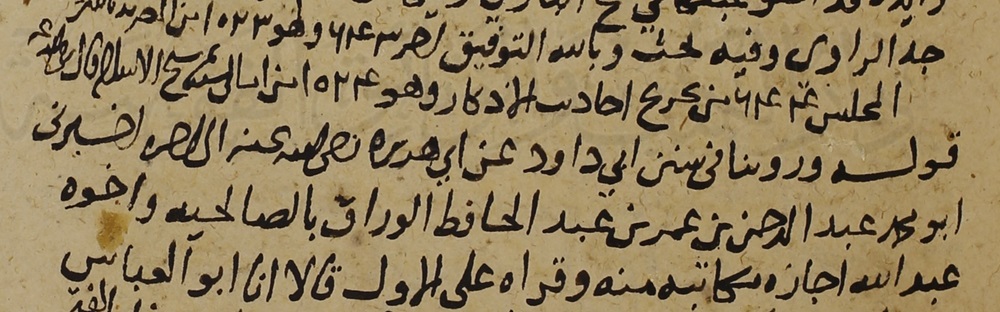 جد الراوى وفيه بحث وبالله التوفيق آخر ٦٤٣ وهو ٥٢٣
المجلس ٦٤٤ من تخريج احاديث الاذكار وهو ٥٢٤ شيخ الاسلام قال
قوله وروينا فى سنن ابي داود عن ابي هريرة رضى الله عنه الى اخره اخبرنى
ابو محمد عبد الرحمن بن عمر بن عبد الحافظ الوراق بالصالحية واخوه
عبد الله اجازه مكاتبه منه وقراه على الاول قالا انا ابو العباس